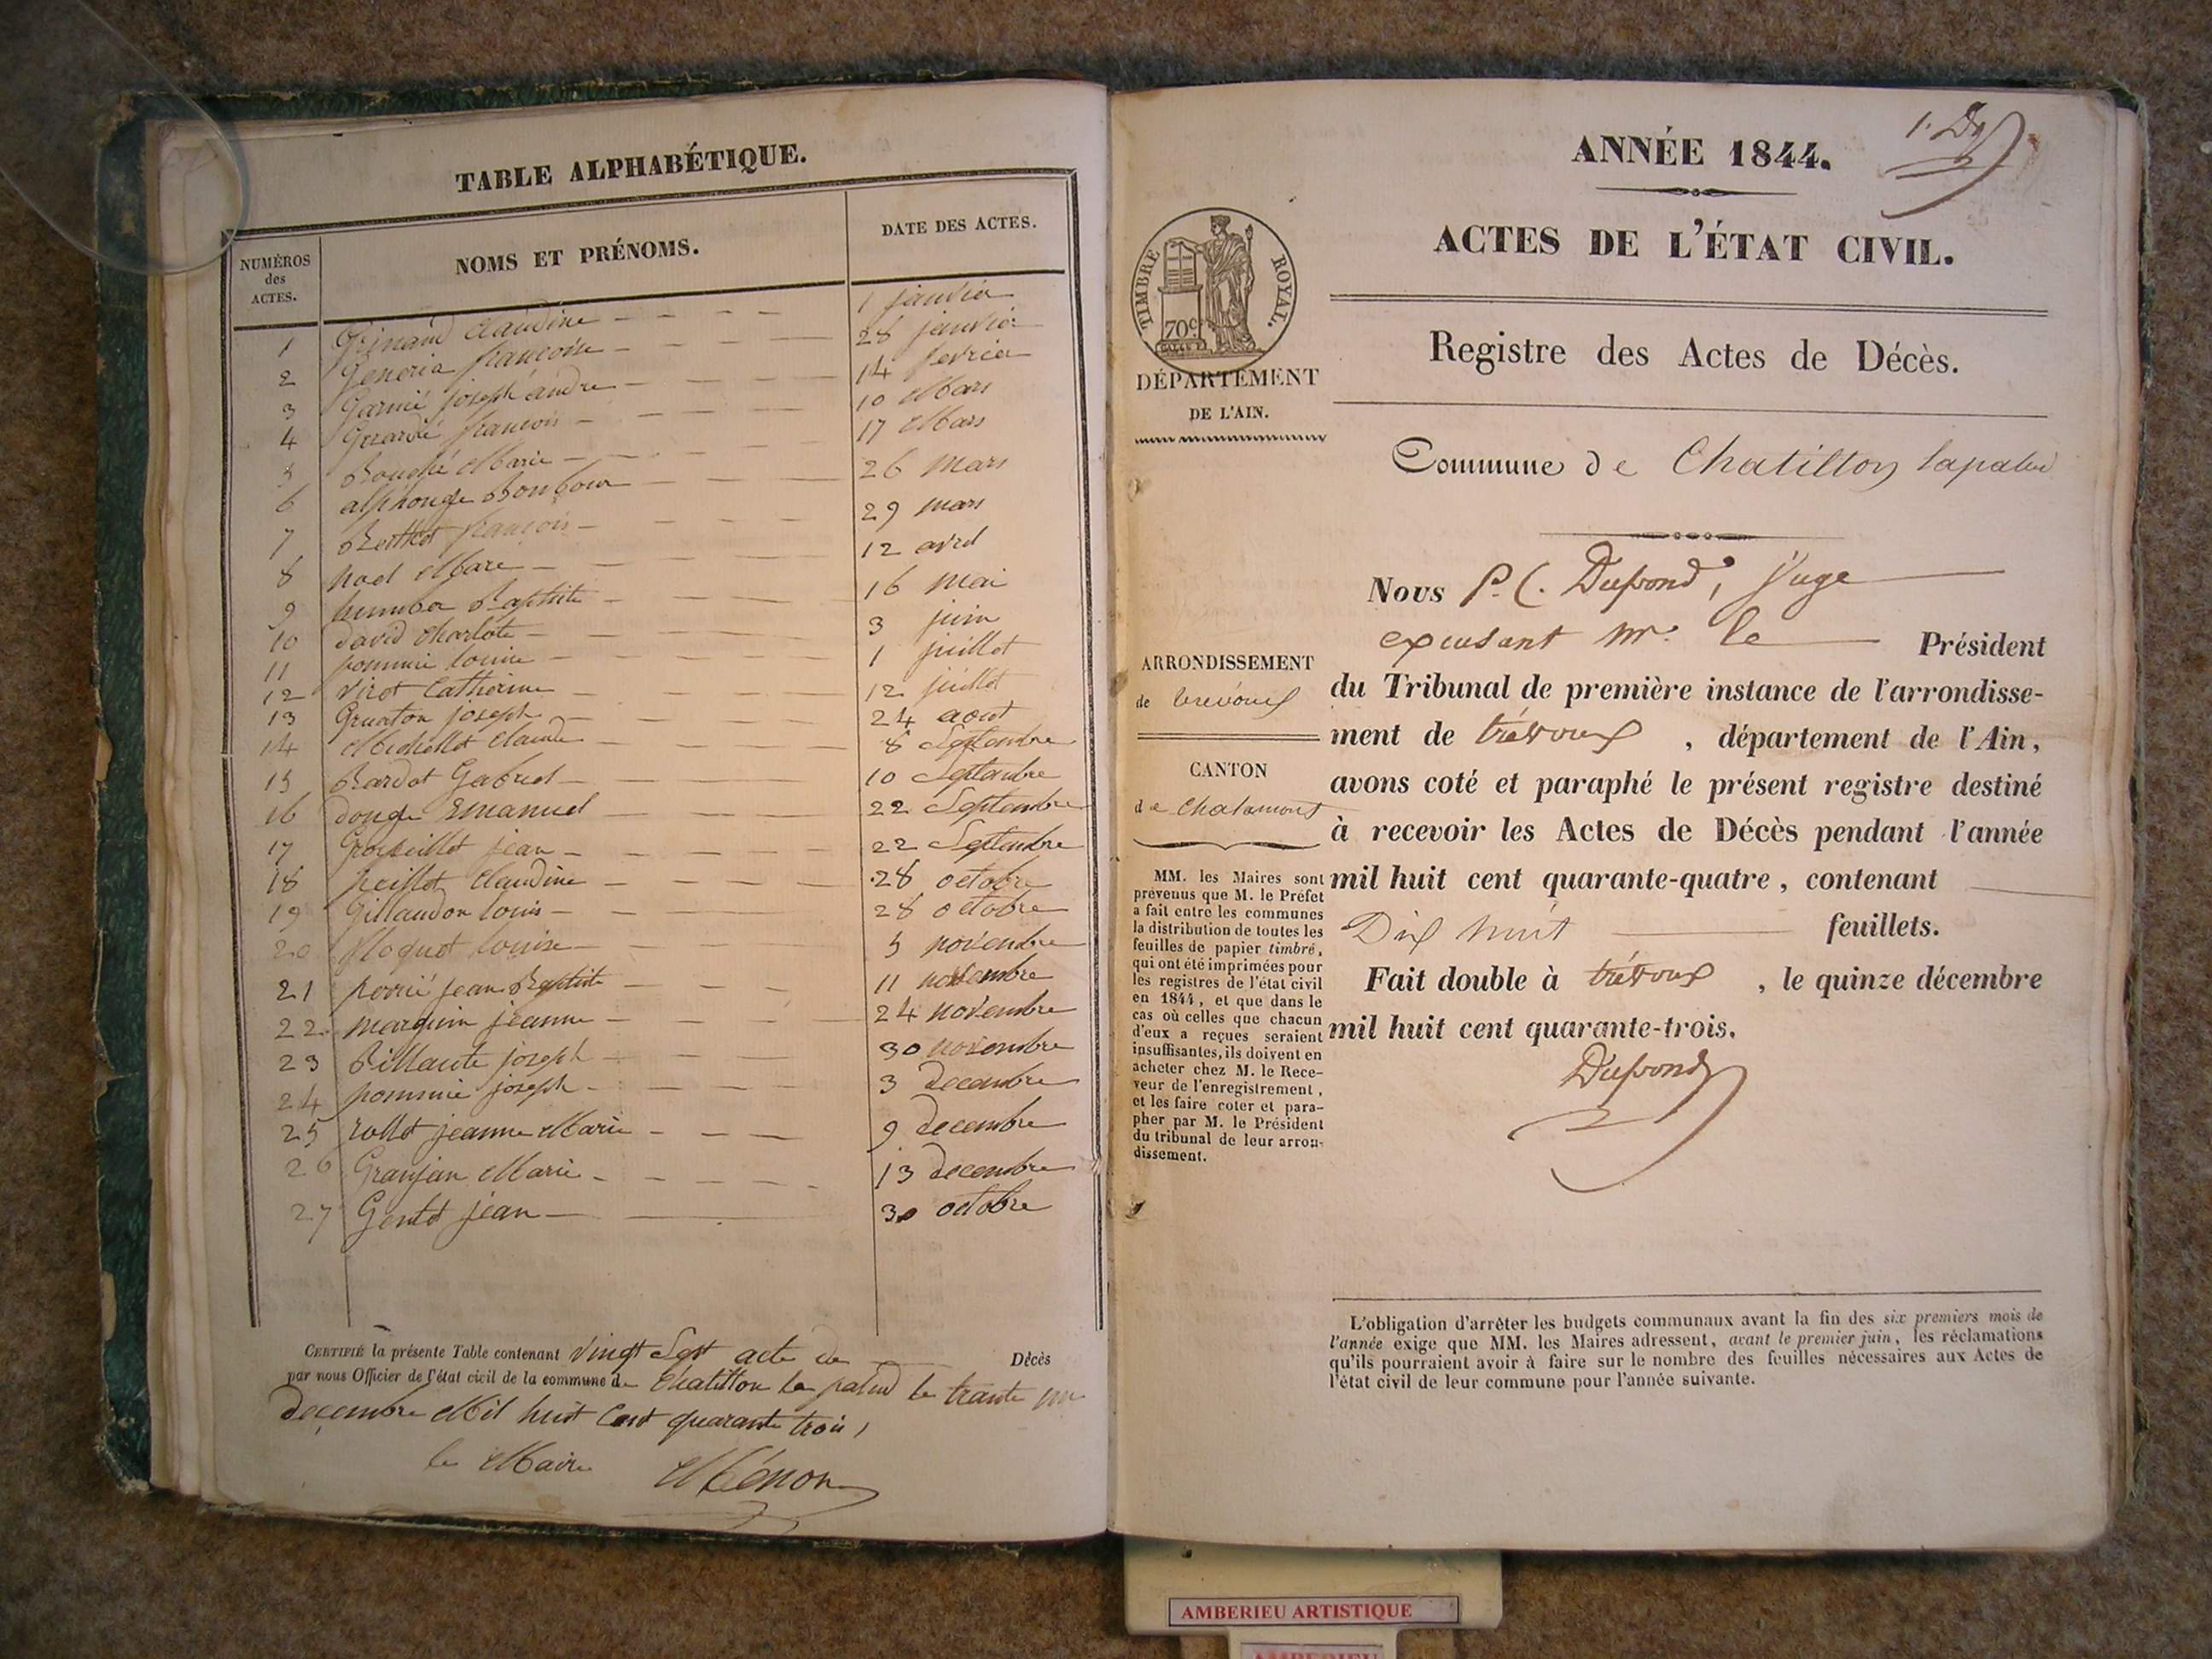 TABLE ALPHABÉTIQUE.
NUMÉROS
des
ACTES.
NOMS ET PRÉNOMS.
DATE DES ACTES.
1 Claudine 1 janvier
2 françoise 28 janvier
3 Garnié joseph andre 14 fevrier
4 françois 10 Mars
5 Marie 17 Mars
6 alphonse 26 mars
7 Berthet françois 29 mars
8 noel Marie 12 avril
9 humber Baptiste 16 mai
10 david Charlote 3 juin
11 pommié louise 1 juillet
12 Virot Catherine 12 juillet
13 Gruaton joseph 24 aout
14 Michellet Claude 8 Septembre
15 Bardot Gabriel 10 Septembre
16 Emanuel 22 Septembre
17 jean 22 Septembre
18 peillot Claudine 28 octobre
19 Gillaudon louis 28 octobre
20 louise 5 novembre
21 jean Baptiste 11 novembre
22 marguin jeanne 24 novembre
23 joseph 30 novembre
24 pommié joseph 3 decembre
25 rollet jeanne Marie 9 decembre
26 Granjan Marie 13 decembre
27 jean 30 octobre
CERTIFIÉ la présente Table contenant Vingt Sept acte de Décès
par nous Officier de l'état civil de la commune de Chatillon la palud le trante un
decembre Mil huit Cent quarante trois,
le Maire Ménon
1. D
ANNÉE 1844.
ACTES DE L'ÉTAT CIVIL.
TIMBRE ROYAL.
70c
DÉPARTEMENT
DE L'AIN.
Registre des Actes de Décès.
Commune de Chatillon lapalud
Nous P. C. Dupond, Juge
excusant Mr. le Président
du Tribunal de première instance de l'arrondisse-
ment de trévoux , département de l'Ain,
avons coté et paraphé le présent registre destiné
à recevoir les Actes de Décès pendant l'année
mil huit cent quarante-quatre, contenant
Dix huit feuillets.
Fait double à trévoux , le quinze décembre
mil huit cent quarante-trois.
Dupond
ARRONDISSEMENT
de trevoux
CANTON
de Chalamont
MM. les Maires sont
prévenus que M. le Préfet
a fait entre les communes
la distribution de toutes les
feuilles de papier timbré,
qui ont été imprimées pour
les registres de l'état civil
en 1844, et que dans le
cas où celles que chacun
d'eux a reçues seraient
insuffisantes, ils doivent en
acheter chez M. le Rece-
veur de l'enregistrement,
et les faire coter et para-
pher par M. le Président
du tribunal de leur arron-
dissement.
L'obligation d'arrêter les budgets communaux avant la fin des six premiers mois de
l'année exige que MM. les Maires adressent, avant le premier juin, les réclamations
qu'ils pourraient avoir à faire sur le nombre des feuilles nécessaires aux Actes de
l'état civil de leur commune pour l'année suivante.
AMBERIEU ARTISTIQUE
AMBERIEU